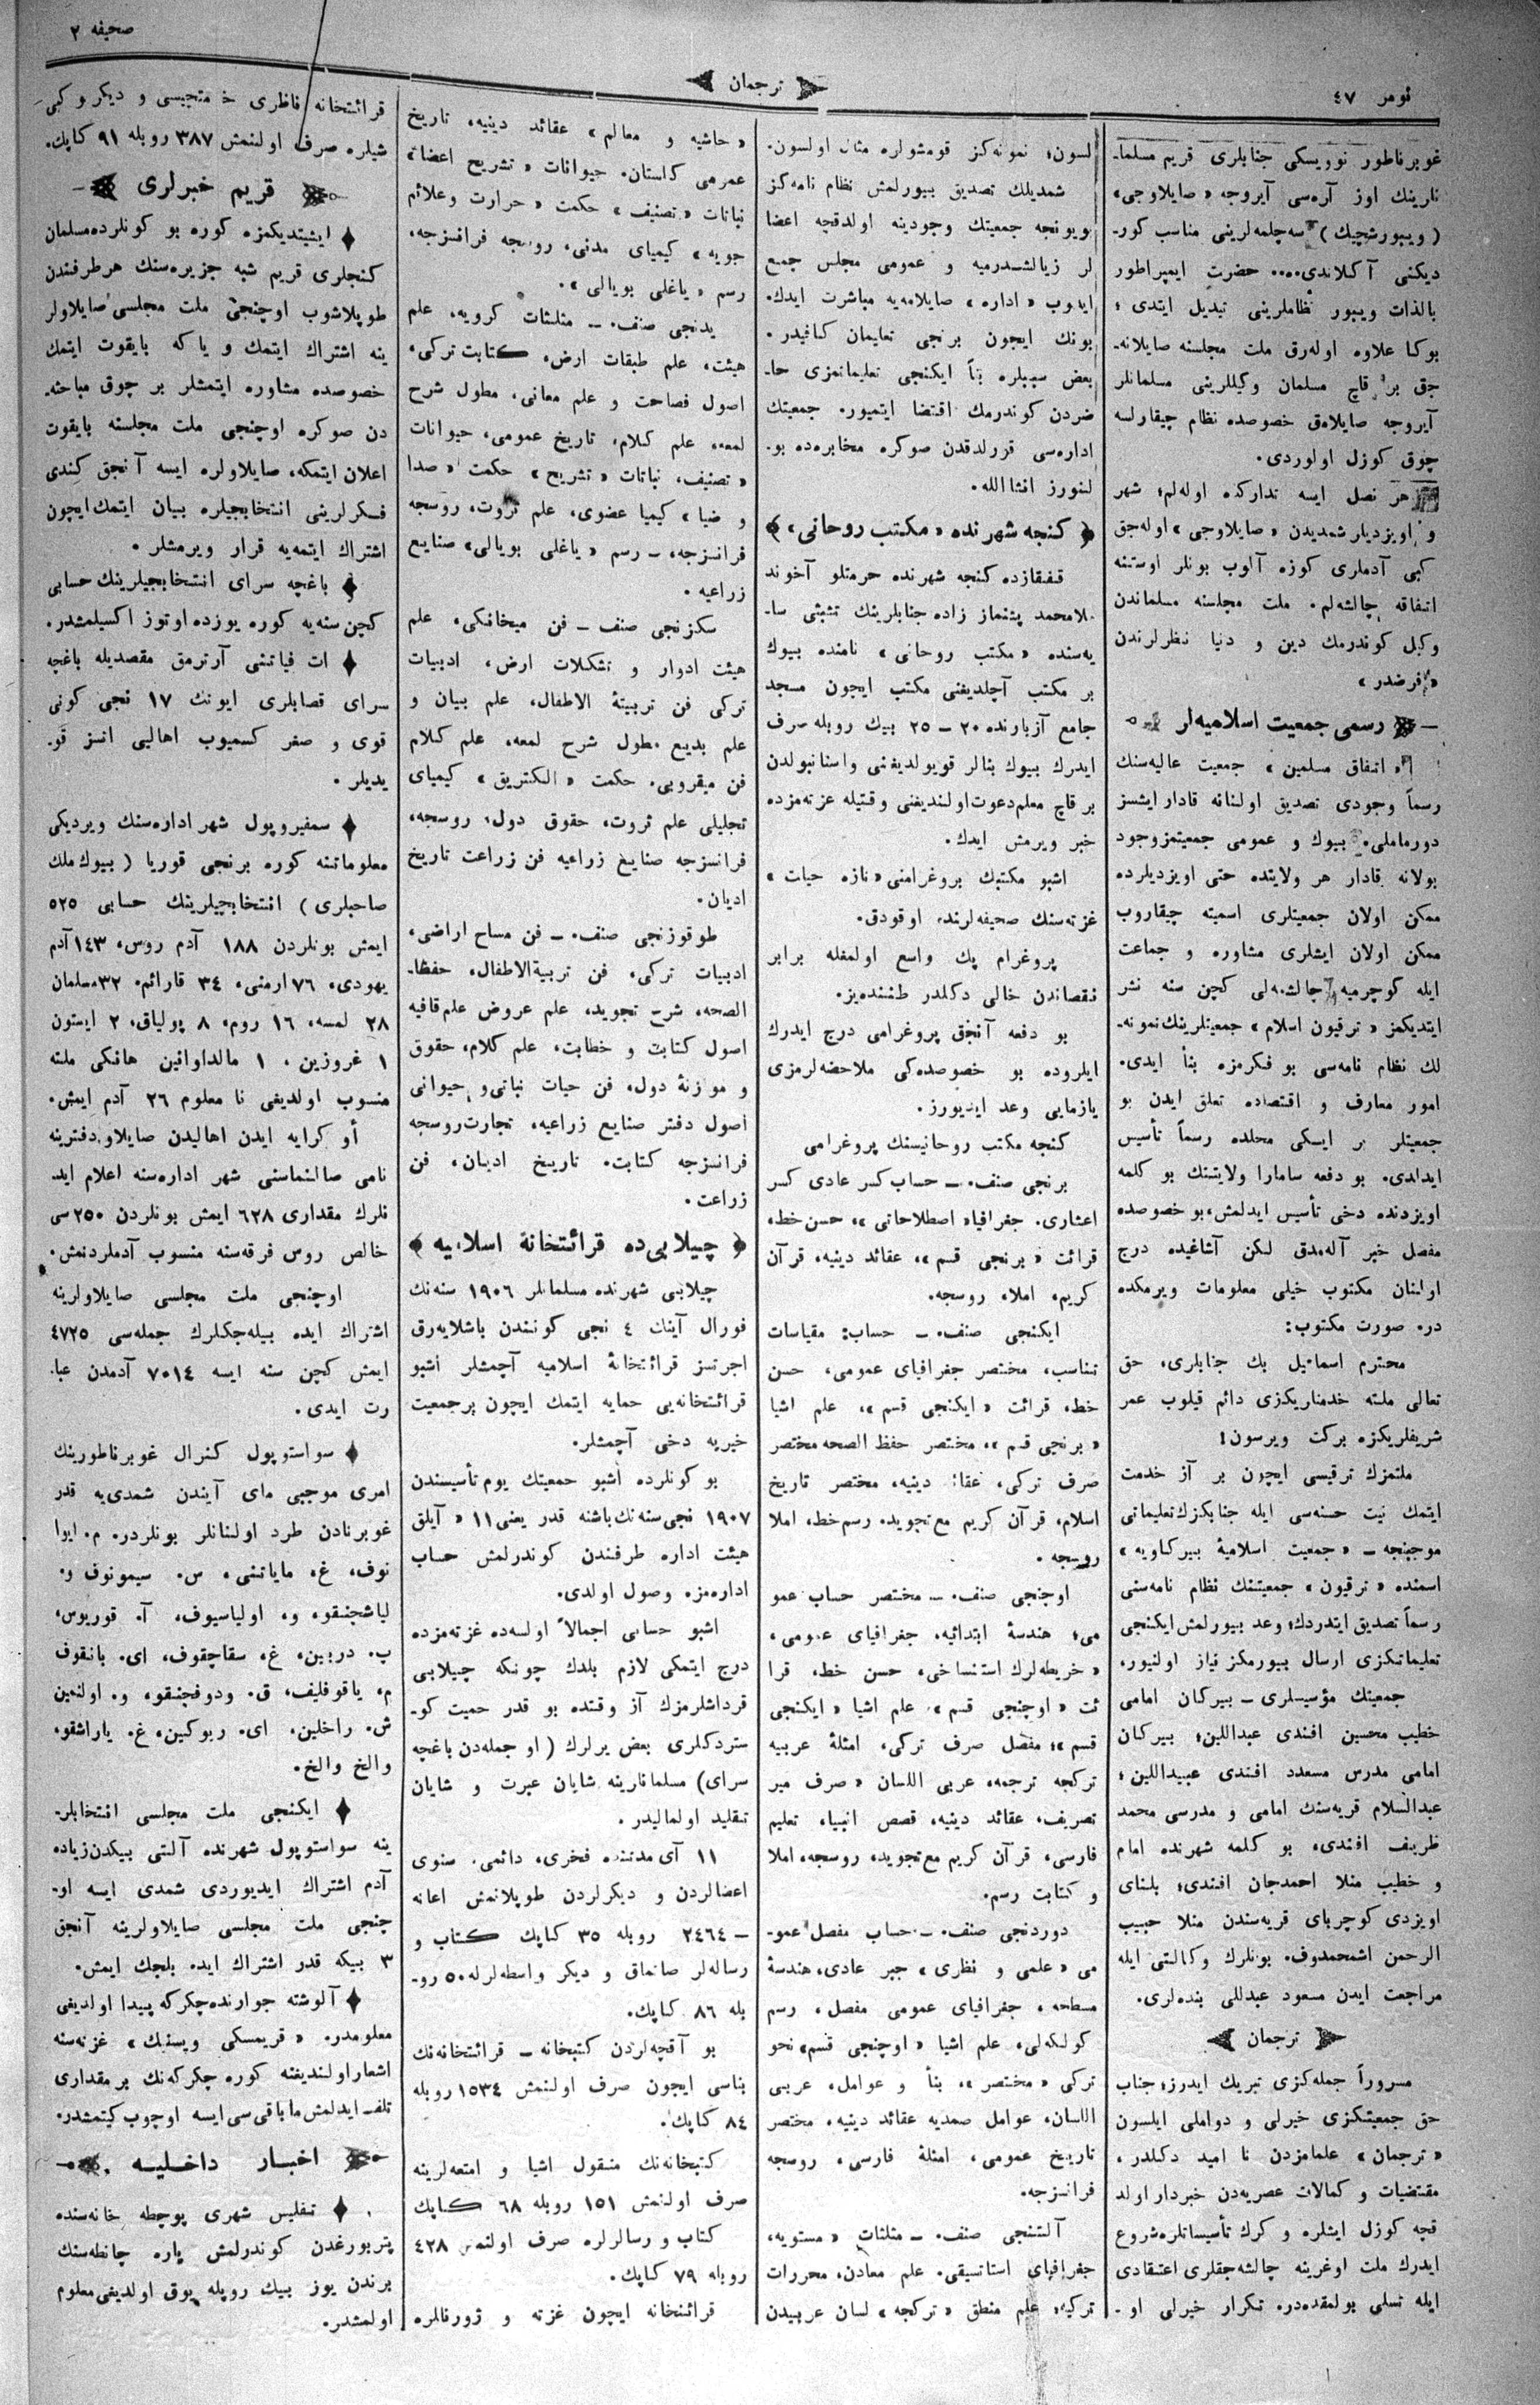 نومر ٤٧
ترجمان
صحيفه ٢
غوبرناطور نوويسكى جنابلرى قريم مسلما-
نارينك اوز آره‌سى آيروجه «صايلاوجى»
(ويبورشچيك) سه‌چلمه‌لرينى مناسب كور-
ديكنى آكلاندى..... حضرت ايمپراطور
بالذات ويبور نظاملرينى تبديل ايتدى ؛
بوكا علاوه اوله‌رق ملت مجلسنه صايلانه-
جق بر قاچ مسلمان وكيللرينى مسلمانلر
آيروجه صايلامق خصوصده نظام چيقارلسه
چوق كوزل اولوردى.
هر نصل ايسه تداركده اوله‌لم؛ شهر
و اويزديار شمديدن «صايلاوجى» اوله‌جق
كبى آدملرى كوزه آلوب بونلر اوستنه
اتفاقه چالشه‌لم. ملت مجلسنه مسلماندن
وكيل كوندرمك دين و دنيا نظرلرندن
«فرضدر»
رسمى جمعيت اسلاميه‌لر
«اتفاق مسلمين» جمعيت عاليه‌سنك
رسماً وجودى تصديق اولنانه قادار ايشسز
دورماملى. بيوك و عمومى جمعيتمز وجود
بولانه قادار هر ولايتده حتى اويزديلرده
ممكن اولان جمعيتلرى اسميته چيقاروب
ممكن اولان ايشلرى مشاوره و جماعت
ايله كوچرميه چالشمه‌لى كچن سنه نشر
ايتديكمز «ترقيون اسلام» جمعيتلرينك نمونه-
لك نظام نامه‌سى بو فكرمزه بنأ ايدى.
امور معارف و اقتصاده تعلق ايدن بو
جمعيتلر بر ايسكى محلده رسماً تأسيس
ايدلدى. بو دفعه سامارا ولايتنك بو كلمه
اويزدنده دخى تأسيس ايدلمش، بو خصوصده
مفصل خبر آله‌مدق لكن آشاغيده درج
اولنان مكتوب خيلى معلومات ويرمكده
در. صورت مكتوب:
محترم اسماعيل بك جنابلرى، حق
تعالى ملته خدمتاريكزى دائم قيلوب عمر
شريفلريكزه بركت ويرسون!
ملتمزك ترقيسى ايچون بر آز خدمت
ايتمك نيت حسنه‌سى ايله جنابكزك تعليماتى
موجبنجه ـ «جمعيت اسلامية بيركاويه»
اسمنده «ترقيون» جمعيتنك نظام نامه‌سنى
رسماً تصديق ايتدردك؛ وعد بيورلمش ايكنجى
تعليماتكزى ارسال بيورمكز نياز اولنيور.
جمعيتك مؤسيسلرى ـ بيركان امامى
خطيب محسين افندى عبداللين؛ بيركان
امامى مدرس مسعدد افندى عبيداللين؛
عبدالسلام قريه‌سنك امامى و مدرسى محمد
ظريف افندى، بو كلمه شهرنده امام
و خطيب منلا احمدجان افندى؛ بلناى
اويزدى كوچرباى قريه‌سندن منلا حبيب
الرحمن اشمحمدوف. بونلرك وكالتى ايله
مراجعت ايدن مسعود عبداللى بنده‌لرى.
ترجمان
مسروراً جمله‌كزى تبريك ايدرز؛ جناب
حق جمعيتكزى خيرلى و دواملى ايلسون
«ترجمان» علمامزدن نا اميد دكلدر،
مقتضيات و كمالات عصريه‌دن خبردار اولد
قچه كوزل ايشلره و كرك تأسيساتلره شروع
ايدرك ملت اوغرينه چالشه‌جقلرى اعتقادى
ايله تسلى بولمقده‌در. تكرار خيرلى او-
لسون؛ نمونه‌كز قومشولره مثال اولسون.
شمديلك تصديق بيورلمش نظام نامه‌كز
بويونجه جمعيتك وجودينه اولدقچه اعضا
لر زيالشدرميه و عمومى مجلس جمع
ايدوب «اداره» صايلامه‌يه مباشرت ايدك.
بونك ايچون برنجى تعليماتمان كافيدر.
بعض سببلره بناً ايكنجى تعليماتمزى حا-
ضردن كوندرمك اقتضا ايتميور. جمعيتك
اداره‌سى قورلدقدن صوكره مخابره‌ده بو-
لنورز انشاالله.
كنجه شهرنده «مكتب روحانى»
قفقازده كنجه شهرنده حرمتلو آخوند
ملا محمد پشنماز زاده جنابلرينك تشبثى سا-
يه‌سنده «مكتب روحانى» نامنده بيوك
بر مكتب آچلديغنى مكتب ايچون مسجد
جامع آزبارنده ٢٠ ـ ٢٥ بيك روبله صرف
ايدرك بيوك بنالر قويولديغنى واستانبولدن
بر قاچ معلم دعوت اولنديغنى وقتيله غزته‌مزده
خبر ويرمش ايدك.
اشبو مكتبك پروغرامنى «تازه حيات»
غزته‌سنك صحيفه‌لرنده اوقودق.
پروغرام پك واسع اولمغله برابر
نقصاندن خالى دكلدر ظننده‌يز.
بو دفعه آنجق پروغرامى درج ايدرك
ايلروده بو خصوصده‌كى ملاحضه‌لرمزى
يازمايى وعد ايديورز.
كنجه مكتب روحانيسنك پروغرامى
برنجى صنف. ـ حساب كسر عادى كسر
اعشارى. جغرافيا «اصطلاحاتى»، حسن خط،
قرائت «برنجى قسم»، عقائد دينيه، قرآن
كريم، املا، روسجه.
ايكنجى صنف. ـ حساب: مقياسات
تناسب، مختصر جغرافياى عمومى، حسن
خط، قرائت «ايكنجى قسم»، علم اشيا
«برنجى قسم»، مختصر حفظ الصحه مختصر
صرف تركى، عقائد دينيه، مختصر تاريخ
اسلام، قرآن كريم مع تجويد، رسم خط، املا
روسجه.
اوچنجى صنف. ـ مختصر حساب عمو
مى؛ هندسۀ ابتدائيه، جغرافياى عمومى،
«خريطه‌لرك استنساخى، حسن خط، قرا
ئت «اوچنجى قسم»، علم اشيا «ايكنجى
قسم»؛ مفصل صرف تركى، امثلۀ عربيه
تركجه ترجمه، عربى اللسان «صرف مير
تصريف، عقائد دينيه، قصص انبيا، تعليم
فارسى، قرآن كريم مع تجويد، روسجه، املا
و كتابت رسم.
دوردنجى صنف. ـ حساب مفصل عمو-
مى «علمى و نظرى» جبر عادى، هندسۀ
مسطحه، جغرافياى عمومى مفصل، رسم
كولكه‌لى، علم اشيا «اوچنجى قسم»، نحو
تركى «مختصر»، بنأ و عوامل، عربى
اللسان، عوامل صمديه عقائد دينيه، مختصر
تاريخ عمومى، امثلۀ فارسى، روسجه
فرانسزجه.
آلتنجى صنف. ـ مثلثات «مستويه،
جغرافياى استاتسيقى. علم معادن، محررات
تركيه، علم منطق «تركجه» لسان عربيدن
«حاشيه و معالم» عقائد دينيه، تاريخ
عمومى كلستان. حيوانات «تشريح اعضا»
نباتات «تصنيف» حكمت «حرارت وعلائم
جويه» كيمياى مدنى، روسجه فرانسزجه،
رسم «ياغلى بويالى».
يدنجى صنف. ـ مثلثات كرويه، علم
هيئت، علم طبقات ارض، كتابت تركى،
اصول فصاحت و علم معانى، مطول شرح
لمعه، علم كلام، تاريخ عمومى، حيوانات
«تصنيف، نباتات «تشريح» حكمت «صدا
و ضيا» كيميا عضوى، علم ثروت، روسجه
فرانسزجه، ـ رسم «ياغلى بويالى» صنايع
زراعيه.
سكزنجى صنف ـ فن ميخانكى، علم
هيئت ادوار و تشكلات ارض، ادبيات
تركى فن تربيتۀ الاطفال، علم بيان و
علم بديع مطول شرح لمعه، علم كلام
فن ميقروبى. حكمت «الكتريق» كيمياى
تحليلى علم ثروت، حقوق دول، روسجه،
فرانسزجه صنايع زراعيه فن زراعت تاريخ
اديان.
طوقوزنجى صنف. ـ فن مساح اراضى،
ادبيات تركى، فن تربيةالاطفال، حفظا-
الصحه، شرح تجويد، علم عروض علم قافيه
اصول كتابت و خطابت، علم كلام، حقوق
و موزنۀ دول، فن حيات نباتى و حيوانى
اصول دفتر صنايع زراعيه، تجارت روسجه
فرانسزجه كتابت. تاريخ اديان، فن
زراعت.
چيلابى‌ده قرائتخانۀ اسلاميه
چيلابى شهرنده مسلمانلر ١٩٠٦ سنه‌نك
فورال آينك ٤ نجى كونندن باشلايه‌رق
اجرتسز قرائتخانۀ اسلاميه آچمشلر اشبو
قرائتخانه‌يى حمايه ايتمك ايچون بر جمعيت
خيريه دخى آچمشلر.
بو كونلرده اشبو جمعيتك يوم تأسيسندن
١٩٠٧ نجى سنه‌نك باشنه قدر يعنى ١١ «آيلق
هيئت اداره طرفندن كوندرلمش حساب
اداره‌مزه وصول اولدى.
اشبو حسابى اجمالاً اولسه‌ده غزته‌مزده
درج ايتمكى لازم بلدك چونكه چيلابى
قرداشلرمزك آز وقتده بو قدر حميت كو-
ستردكلرى بعض يرلرك (او جمله‌دن باغچه
سراى) مسلمانارينه شايان عبرت و شايان
تقليد اولماليدر.
١١ آى مدتنده فخرى، دائمى، سنوى
اعضالردن و ديكرلردن طوپلانمش اعانه
ـ ٢٤٦٤ روبله ٣٥ كاپك كتاب و
رساله‌لر صاتماق و ديكر واسطه‌لرله ٥٠ رو-
بله ٨٦ كاپك.
بو آقچه‌لردن كتبخانه ـ قرائتخانه‌نك
بناسى ايچون صرف اولنمش ١٥٣٤ روبله
٨٤ كاپك.
كتبخانه‌نك منقول اشيا و امتعه‌لرينه
صرف اولنمش ١٥١ روبله ٦٨ كاپك
كتاب و رسالرلره صرف اولنمش ٤٢٨
روبله ٧٩ كاپك.
قرائتخانه ايچون غزته و ژورنالره
قرائتخانه ناظرى خدمتجيسى و ديكر و كبى
شيلره صرف اولنمش ٣٨٧ روبله ٩١ كاپك.
قريم خبرلرى
ايشيتديكمزه كوره بو كونلرده مسلمان
كنجلرى قريم شبه جزيره‌سنك هر طرفندن
طوپلاشوب اوچنجى ملت مجلسى صايلاولر
ينه اشتراك ايتمك و ياكه بايقوت ايتمك
خصوصده مشاوره ايتمشلر بر چوق مباحثه-
دن صوكره اوچنجى ملت مجلسنه بايقوت
اعلان ايتمكه، صايلاولره ايسه آنجق كندى
فكرلرينى انتخابجيلره بيان ايتمك ايچون
اشتراك ايتمه‌يه قرار ويرمشلر.
باغچه سراى انتخابجيلرينك حسابى
كچن سنه‌يه كوره يوزده اوتوز اكسيلمشدر.
ات فياتنى آرترمق مقصديله باغچه
سراى قصابلرى ايونك ١٧ نجى كونى
قوى و صغر كسميوب اهاليى اتسز قو-
يديلر.
سمفيروپول شهر اداره‌سنك ويرديكى
معلوماتنه كوره برنجى قوريا (بيوك ملك
صاحبلرى) انتخابجيلرينك حسابى ٥٢٥
ايمش بونلردن ١٨٨ آدم روس، ١٤٣ آدم
يهودى، ٧٦ ارمنى، ٣٤ قارائم، ٣٢ مسلمان
٢٨ لمسه، ١٦ روم، ٨ پولياق، ٢ ايستون
١ غروزين، ١ مالداوانين هانكى ملته
منسوب اولديغى نا معلوم ٢٦ آدم ايمش.
أو كرايه ايدن اهاليدن صايلاو دفترينه
نامى صالنماسنى شهر اداره‌سنه اعلام ايد-
نلرك مقدارى ٦٢٨ ايمش بونلردن ٢٥٠ سى
خالص روس فرقه‌سنه منسوب آدملردنمش.
اوچنجى ملت مجلسى صايلاولرينه
اشتراك ايده بيله‌جكلرك جمله‌سى ٤٧٢٥
ايمش كچن سنه ايسه ٧٠١٤ آدمدن عبا-
رت ايدى.
سواستوپول كنرال غوبرناطورينك
امرى موجبى ماى آيندن شمدى‌يه قدر
غوبرنادن طرد اولنانلر بونلردر. م. ايوا
نوف، غ، ماياتنى، س. سيمونوف و.
لياشچنقو، و، اولياسيوف، آ. قوريوس،
پ. دربين، غ، سقاچقوف، اى. بانقوف
م، ياقوفليف، ق. ودوفچنقو، و. اولتمين
ش. راخلين، اى. ربوكين، غ. ياراشقو،
والخ والخ.
ايكنجى ملت مجلسى انتخابلر-
ينه سواستوپول شهرنده آلتى بيكدن زياده
آدم اشتراك ايديوردى شمدى ايسه او-
چنجى ملت مجلسى صايلاولرينه آنجق
٣ بيكه قدر اشتراك ايده بلجك ايمش.
آلوشته جوارنده چكركه پيدا اولديغى
معلومدر. «قريمسكى ويستنك» غزته‌سنه
اشعار اولنديغنه كوره چكركه‌نك بر مقدارى
تلف ايدلمش ما باقى سى ايسه اوچوب كيتمشدر.
اخبار داخليه
تفليس شهرى پوچطه خانه‌سنده
پتربورغدن كوندرلمش پاره چانطه‌سنك
برندن يوز بيك روبله يوق اولديغى معلوم
اولمشدر.